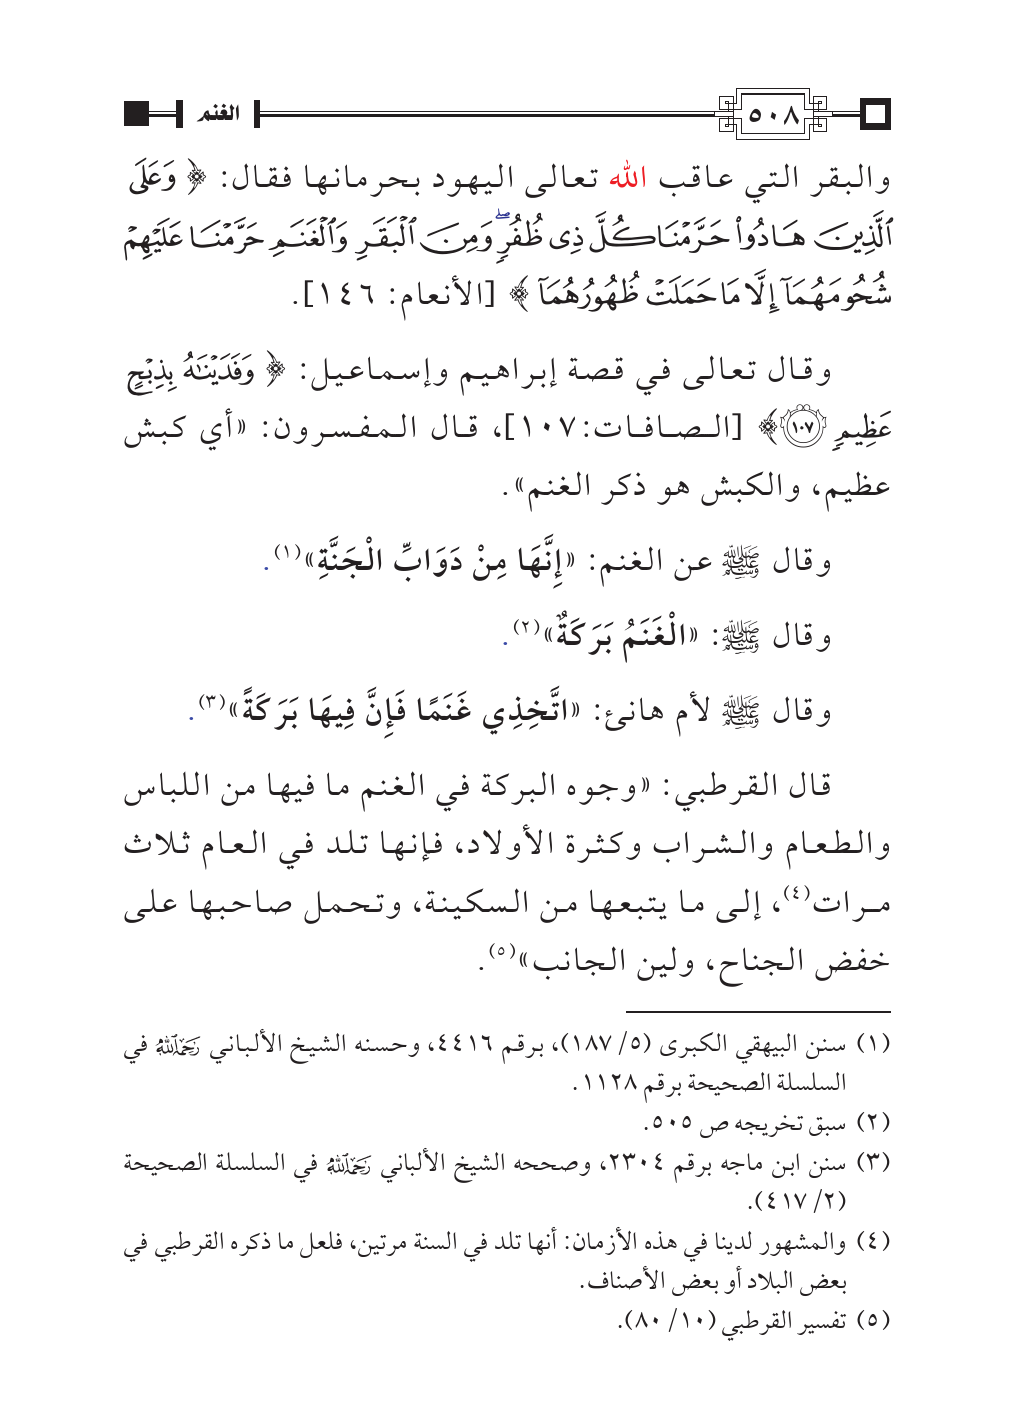 ٥٠٨
الغنم
والبقر التي عاقب الله تعالى اليهود بحرمانها فقال: ﴿ وَعَلَى
ٱلَّذِينَ هَادُواْ حَرَّمْنَا كُلَّ ذِى ظُفُرٍۖ وَمِنَ ٱلْبَقَرِ وَٱلْغَنَمِ حَرَّمْنَا عَلَيْهِمْ
شُحُومَهُمَآ إِلَّا مَا حَمَلَتْ ظُهُورُهُمَآ ﴾ [الأنعام: ١٤٦].
وقال تعالى في قصة إبراهيم وإسماعيل: ﴿ وَفَدَيْنَٰهُ بِذِبْحٍ
عَظِيمٍ ١٠٧﴾ [الصافات: ١٠٧]، قال المفسرون: «أي كبش
عظيم، والكبش هو ذكر الغنم».
وقال ﷺ عن الغنم: «إِنَّهَا مِنْ دَوَابِّ الْجَنَّةِ»(١).
وقال ﷺ: «الْغَنَمُ بَرَكَةٌ»(٢).
وقال ﷺ لأم هانئ: «اتَّخِذِي غَنَمًا فَإِنَّ فِيهَا بَرَكَةً»(٣).
قال القرطبي: «وجوه البركة في الغنم ما فيها من اللباس
والطعام والشراب وكثرة الأولاد، فإنها تلد في العام ثلاث
مرات(٤)، إلى ما يتبعها من السكينة، وتحمل صاحبها على
خفض الجناح، ولين الجانب»(٥).
(١) سنن البيهقي الكبرى (٥/ ١٨٧)، برقم ٤٤١٦، وحسنه الشيخ الألباني رَحِمَهُ ٱللَّهُ في
السلسلة الصحيحة برقم ١١٢٨.
(٢) سبق تخريجه ص ٥٠٥.
(٣) سنن ابن ماجه برقم ٢٣٠٤، وصححه الشيخ الألباني رَحِمَهُ ٱللَّهُ في السلسلة الصحيحة
(٢/ ٤١٧).
(٤) والمشهور لدينا في هذه الأزمان: أنها تلد في السنة مرتين، فلعل ما ذكره القرطبي في
بعض البلاد أو بعض الأصناف.
(٥) تفسير القرطبي (١٠/ ٨٠).